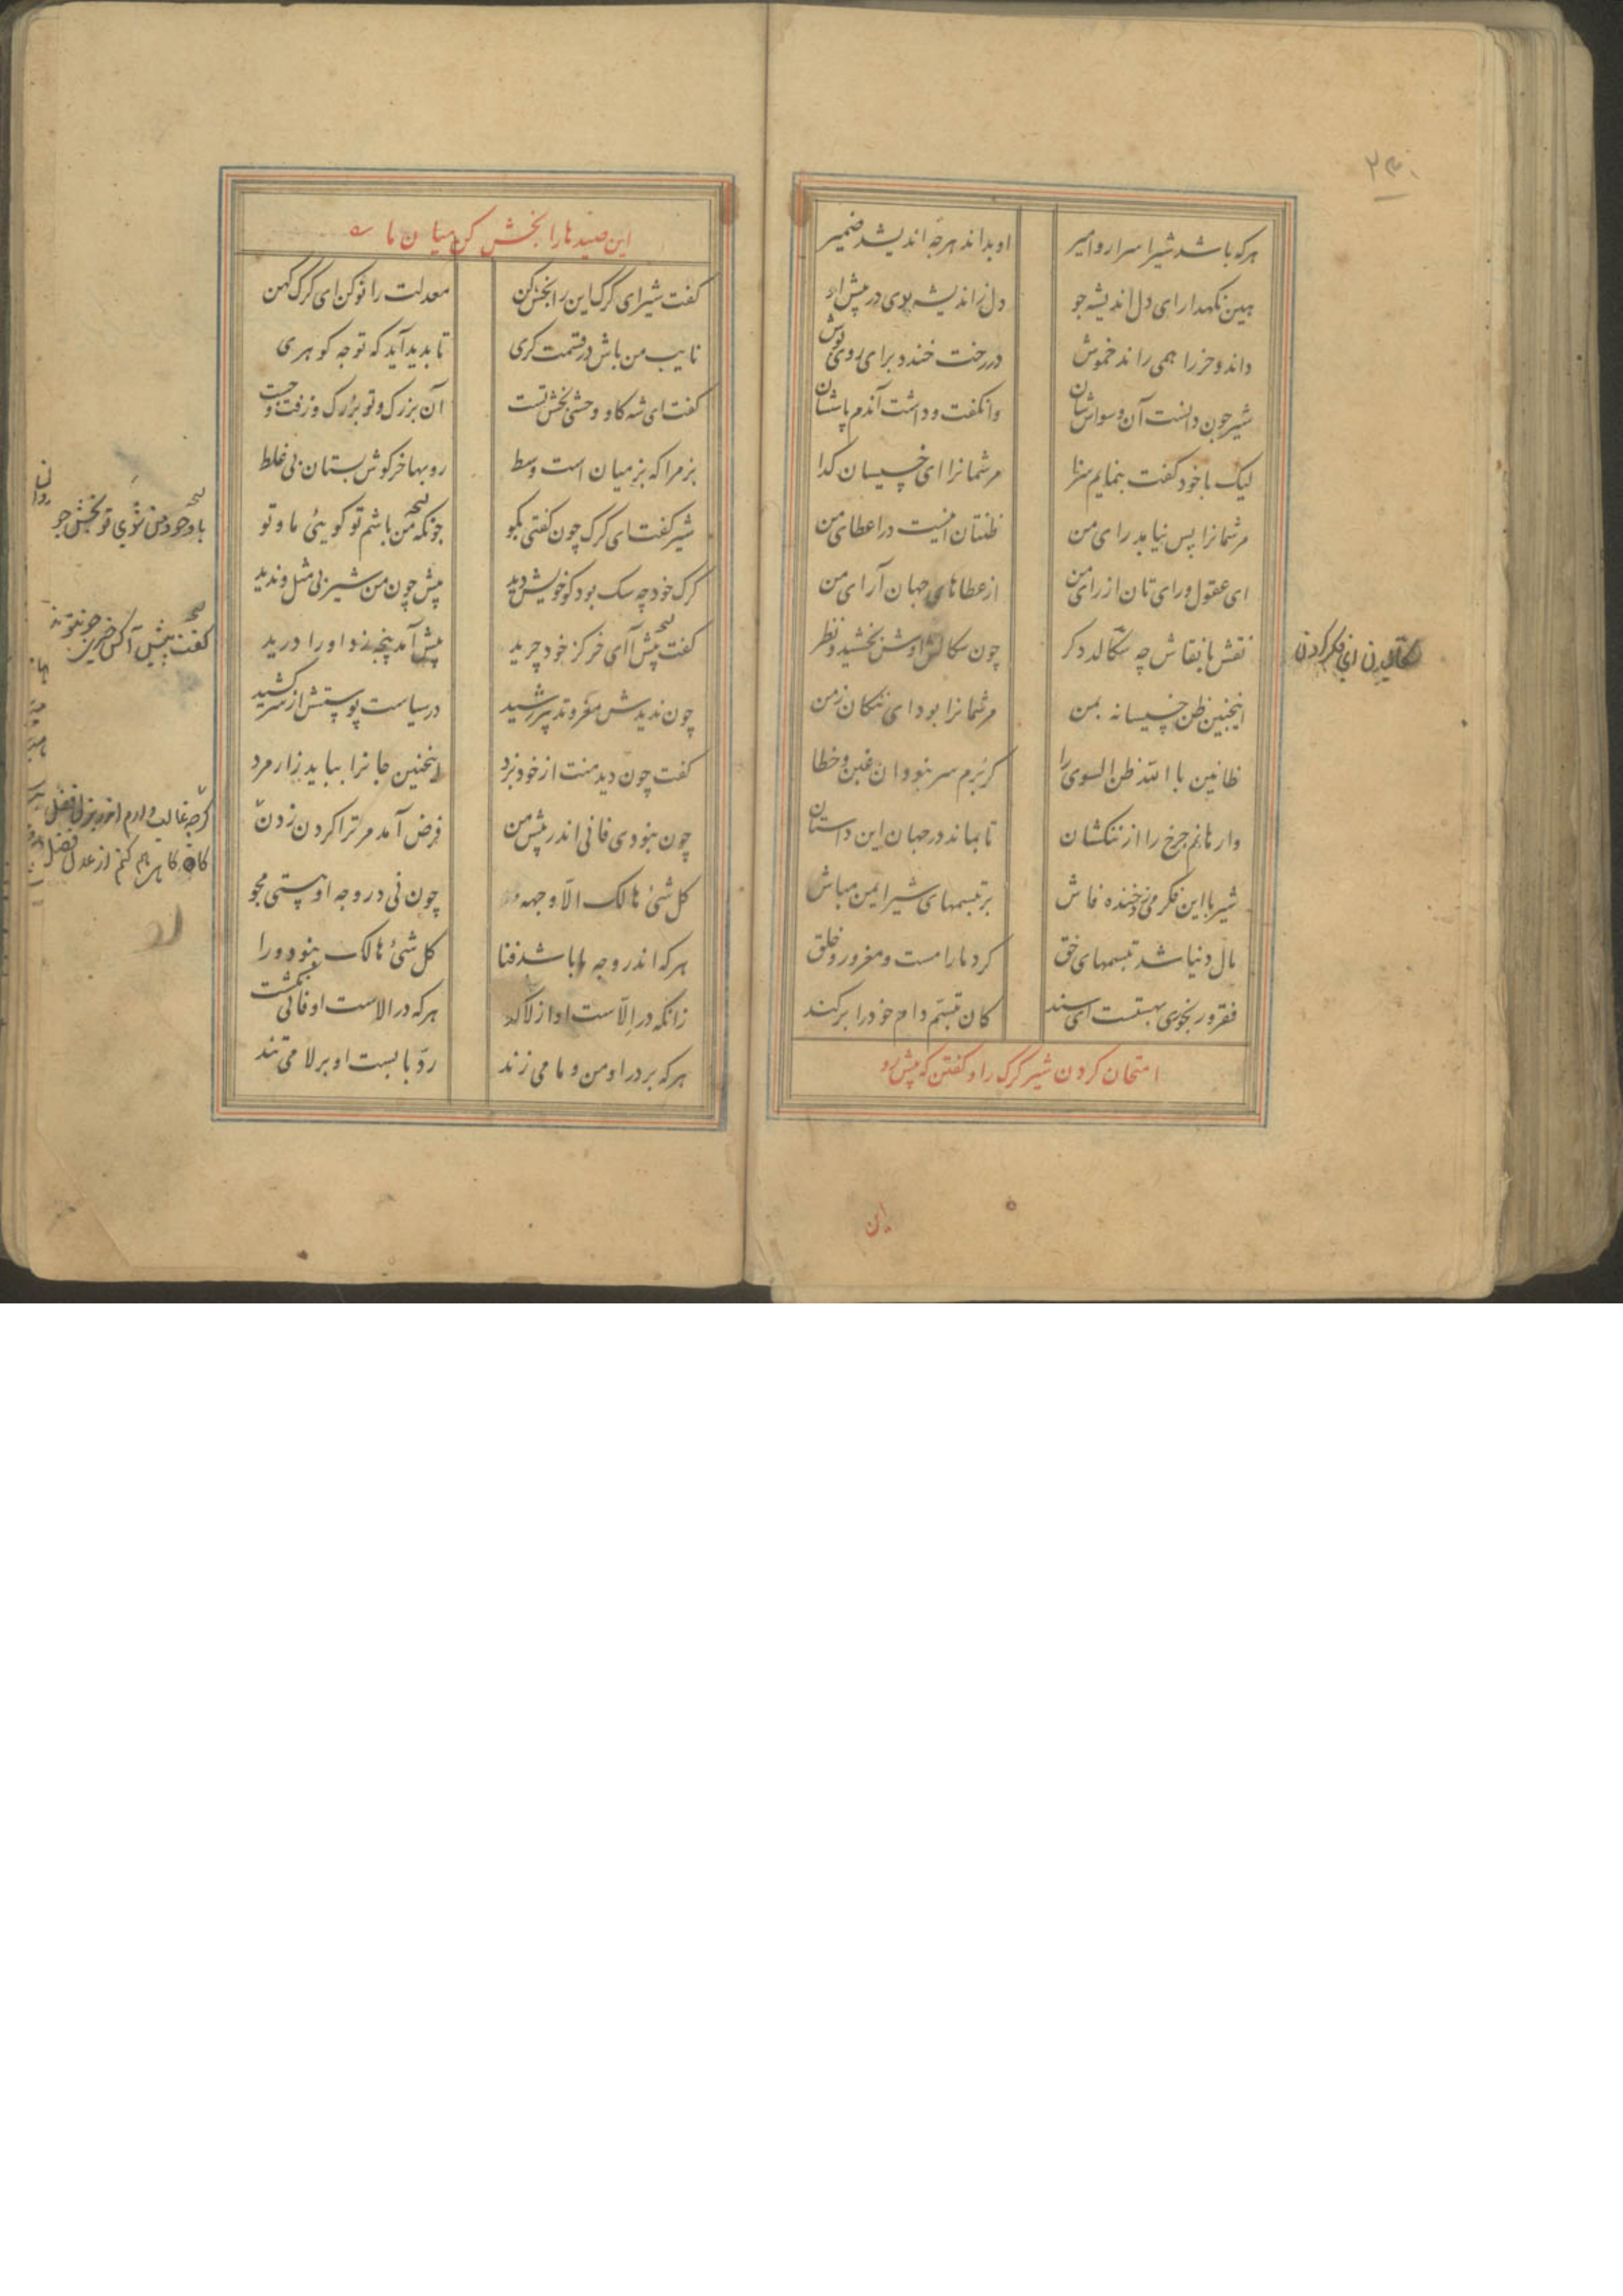 ۲۳۰
هرکه باشد شیر اسرار و امیر او بداند هرچه اندیشد ضمیر
هین نکهدار ای دل اندیشه جو دل ز اندیشه بدی در پیش او
داند و خر را همی راند خموش در رخت خندد برای روی پوش
شیر چون دانست آن وسواسشان وانکفت و داشت آندم پاسشان
لیک با خود کفت بنمایم سزا مر شما را ای خسیسان کدا
مر شما را بس نیامد رای من ظنتان اینست در اعطای من
ای عقول و رای تان از رای من از عطاهای جهان آرای من
نقش با نقاش چه سکالد دکر چون سکالش اوش بخشید و نظر
سکالیدن ای فکر کردن
اینچنین ظن خسیسانه بمن مر شما را بود ای ننکان زمن
ظانین بالله ظن السوی را کر نبرم سر بنود آن غبن و خطا
وارهانم چرخ را از ننکشان تا بماند در جهان این داستان
شیر با این فکر می زد خنده فاش بر تبسمهای شیر ایمن مباش
مال دنیا شد تبسمهای حق کرد ما را مست و مغرور و خلق
فقر و رنجوری بهستت ای سند کان تبسم دام خود را برکند
امتحان کردن شیر کرک را و کفتن که پیش رو
این
این صیدها را بخش کن میان ما
کفت شیر ای کرک این را بخش کن معدلت را نو کن ای کرک کهن
نایب من باش در قسمت کری تا بدید آید که تو چه کوهری
کفت ای شه کاو وحشی بخش تست آن بزرک و تو بزرک و زفت و چست
بز مرا که بز میان است و وسط روبها خرکوش بستان بی غلط
شیر کفت ای کرک چون کفتی بکو چونکه من باشم تو کویی ما و تو
با وجود من شوی تو بخش جو
کرک خود چه سک بود کو خویش دید پیش چون من شیر بی مثل و ندید
کفت پیش آ ای خر کز خود چرید پیش آمد پنجه زد او را درید
چون ندیدش مغز و تدبیر رشید در سیاست پوستش از سر کشید
کفت چون دید منت از خود نبرد اینچنین جانرا بباید زار مرد
چون بنودی فانی اندر پیش من فرض آمد مر ترا کردن زدن
کرچه غالب دارم اندر بذل فضل
کاه کاهی هم کنم از عدل فصل
کل شیء هالک الا وجهه چون نی در وجه او هستی مجو
هرکه اندر وجه ما باشد فنا کل شیء هالک بنود ورا
زانکه در الاست او از لا کذشت هرکه در الاست او فانی نکشت
هرکه بر در او من و ما می زند رد بابست او بر لا می تند